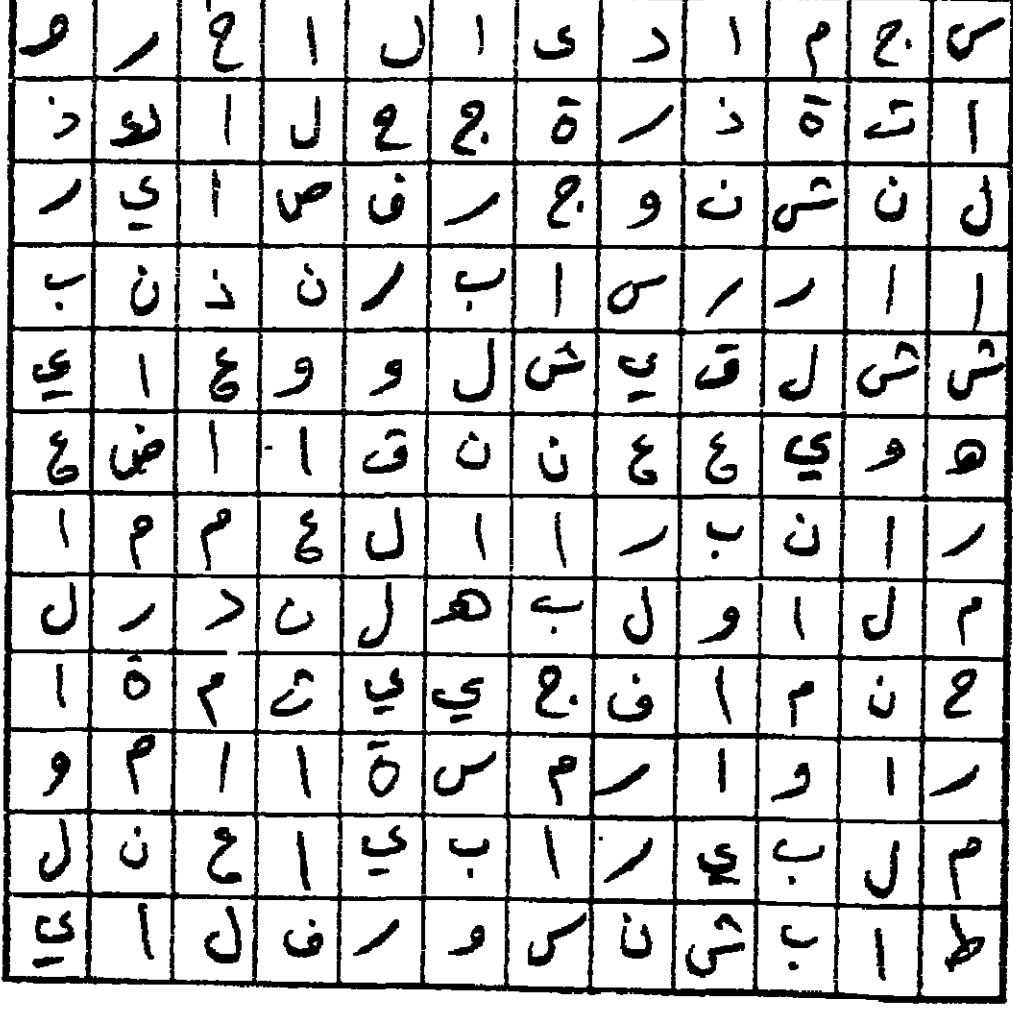 س ج م ا د ى ا ل ا خ ر ه
ا ث ة ذ ر ة ج ح ل ا و ذ
ل ن ش ن و ج ر ف ص ا ي ر
ا ا ر ر س ا ب ر ن ذ ن ب
ش ش ل ق ي ش ل و و ع ا ي
ه و ي ع ع ن ن ق ا ا ض ع
ر ا ن ب ر ا ا ل ع م م ا
م ل ا و ل ب ه ل ن د ر ل
ح ن م ا ف ج ي ي ث م ة ا
ر ا و ا ر م س ة ا ا م و
م ل ب ي ر ا ب ي ا ع ن ل
ط ا ب ش ن س و ر ف ل ا ي